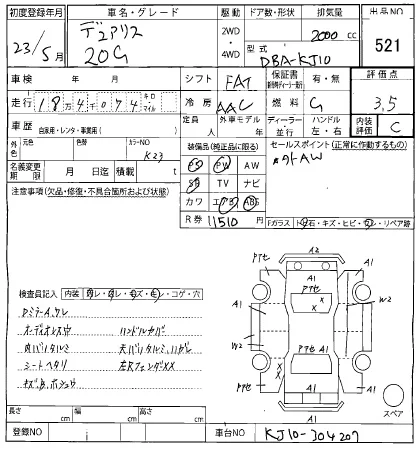 初度登録年月 車名・グレード 駆動 ドア数・形状 排気量 出品NO
23/5月 デュアリス 20G 2WD・4WD 2000cc 521
型式 DBA-KJ10
車検 年 月 シフト FAT 保証書 有・無 評価点
走行 18万4千074 キロ・マイル 冷房 AAC 燃料 G 3,5
車歴 自家用・レンタ・事業用( ) 定員 人 外車モデル 年 ディーラー 並行 ハンドル 左・右 内装評価 C
外色 元色 色替 カラーNO K23
装備品(純正品に限る) セールスポイント(正常に作動するもの)
名義変更期限 月 日迄 積載 t
PS PW AW
SR TV ナビ
カワ エアB ABS
社外AW
注意事項(欠品・修復・不具合箇所および状態)
R券 11510 円
Fガラス 飛石・キズ・ヒビ・ワレ・リペア跡
検査員記入 内装 ワレ・キズ・コゲ・穴
DミラーA,ワレ
オーディオレス ハンドルカバ
内バリタルミ 天バリタルミ,ハガレ
シートヘタリ 左Rフェンダ XX
A2
A1 A1 A1
アセ アセ A1
A1 W2
W2 A1
アセ A1
アセ アセ
A1 A1
A1
スペア
長さ cm 幅 cm 高さ cm
登録NO 車台NO KJ10-304207